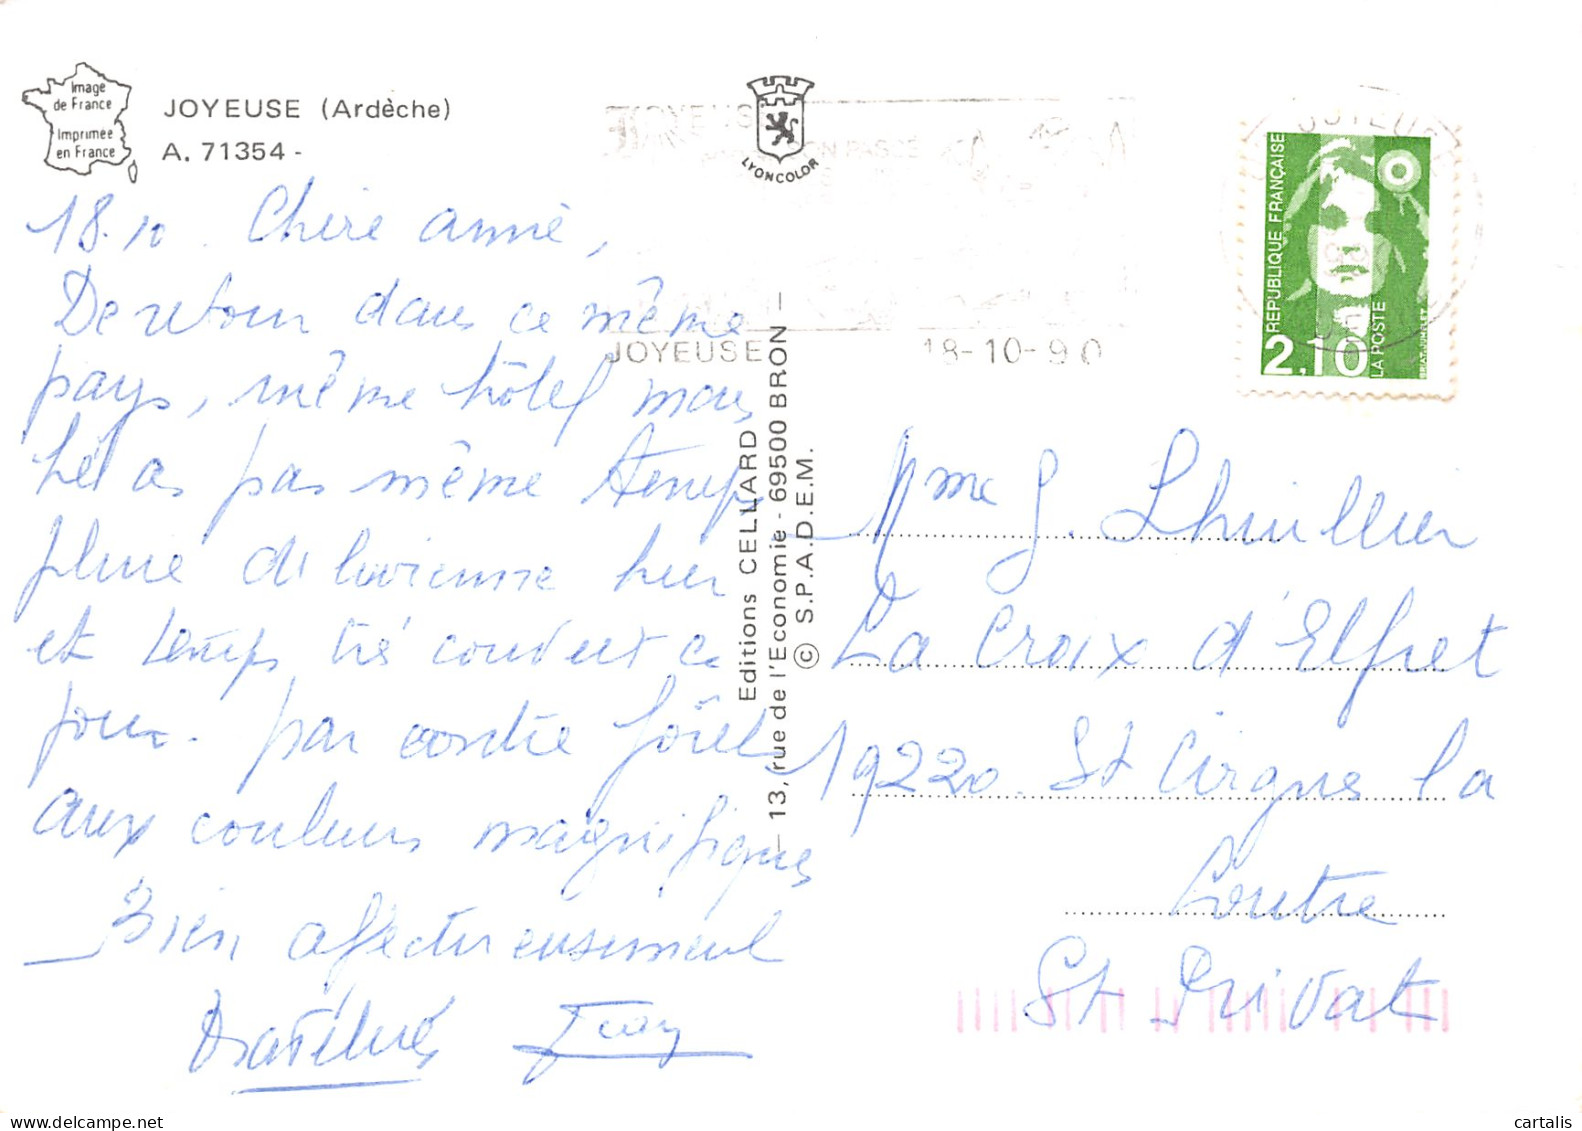 Image
de France
Imprimée
en France
JOYEUSE (Ardèche)
A. 71354 -
LYONCOLOR
JOYEUSE
18-10-90
REPUBLIQUE FRANÇAISE
2,10
LA POSTE
BRIAT-JUMELET
18.10. Chère Annie,
De retour dans ce même
pays, même hôtel mais
hélas pas même temps
pluie diluvienne hier
et temps très couvert ce
jour. par contre forêt
aux couleurs magnifiques
Bien affectueusement
Editions CELLARD
— 13, rue de l'Economie - 69500 BRON —
© S.P.A.D.E.M.
Mme G. Lhuillier
La Croix d'Elfret
19220. St Cirgues la
Loutre
St Privat
cartalis
www.delcampe.net